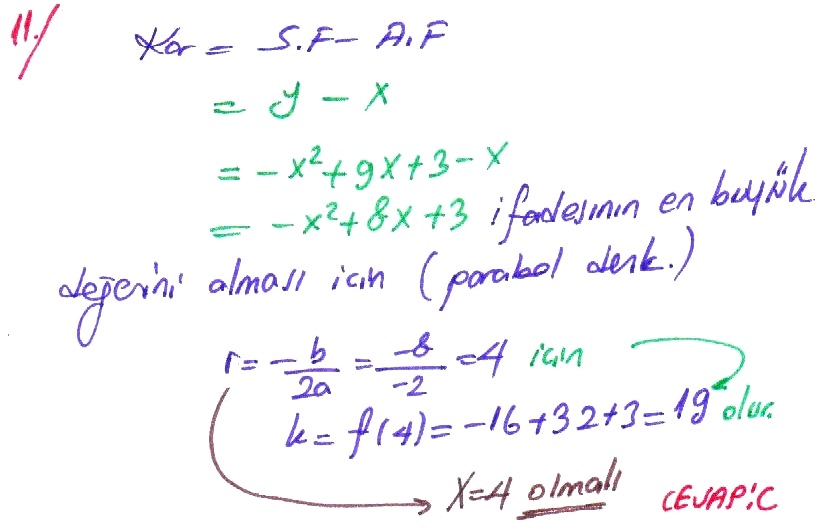 11./ Kar = S.F - A.F
= y - x
= -x² + 9x + 3 - x
= -x² + 8x + 3 ifadesinin en büyük
değerini alması için (parabol denk.)
r = -b/2a = -8/-2 = 4 için
k = f(4) = -16 + 32 + 3 = 19 olur.
X=4 olmalı CEVAP:C